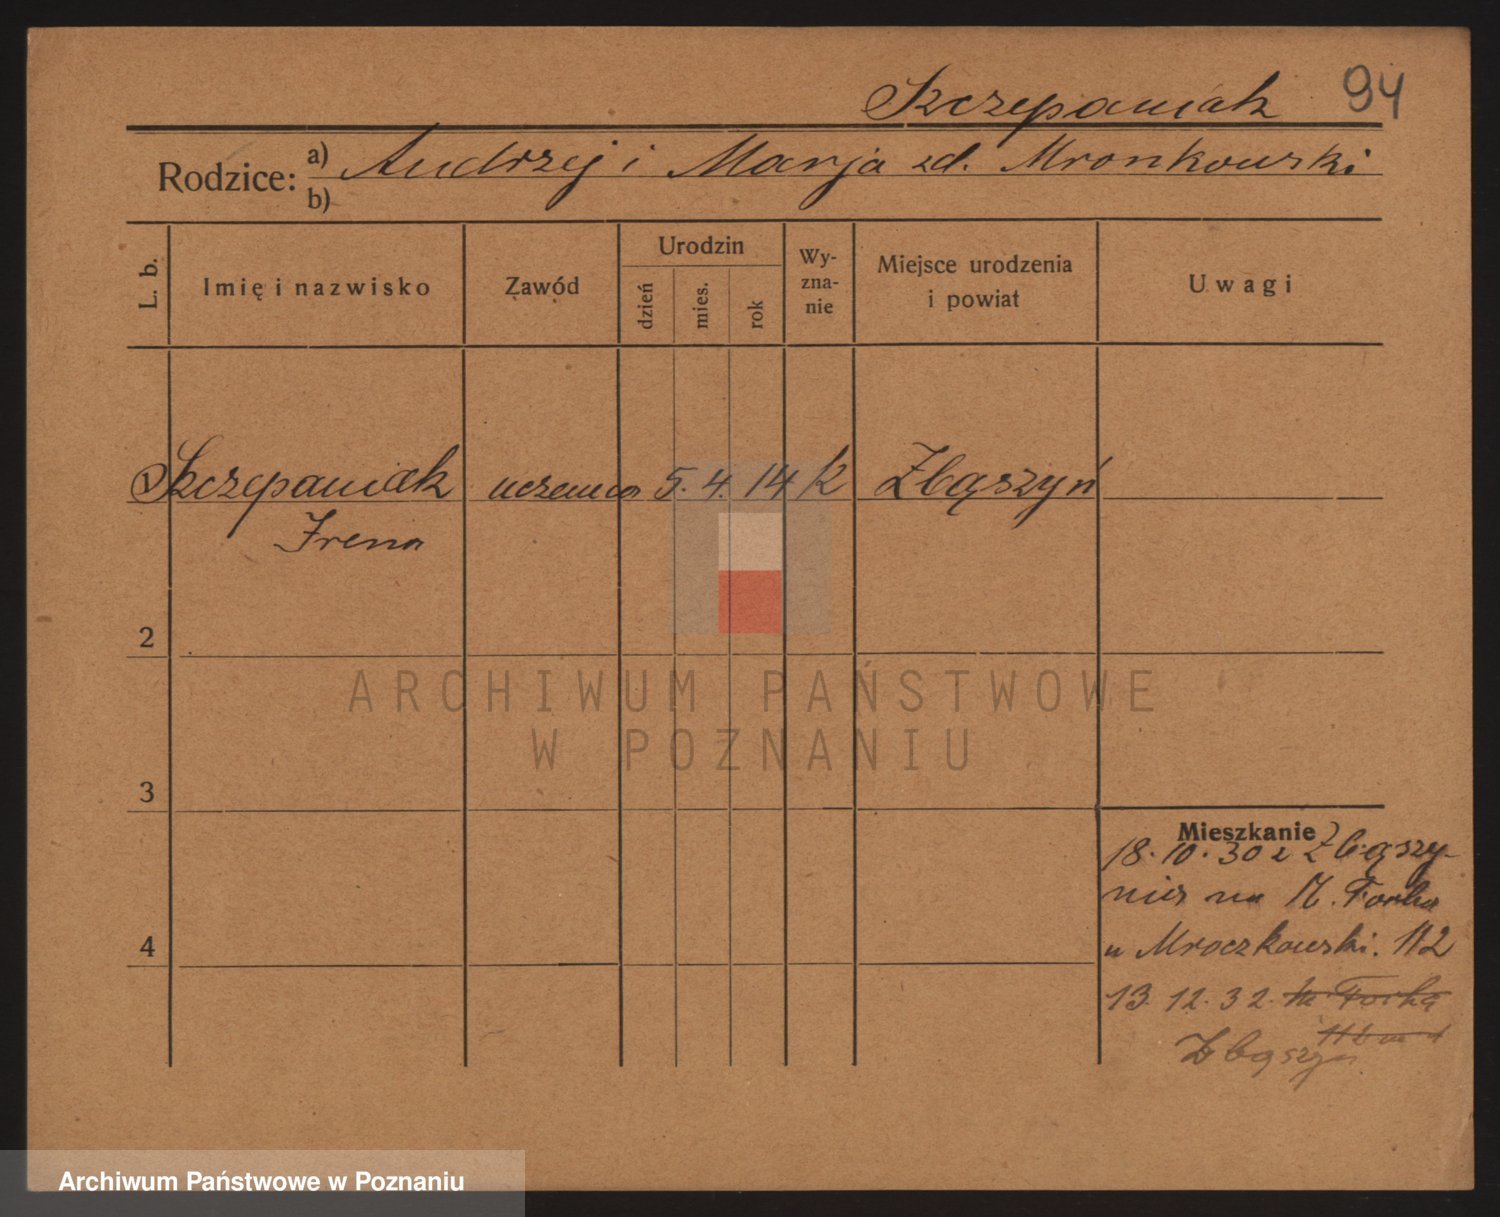 Szczepaniak 94
Rodzice: a) Andrzej i Marja zd. Mronkowski
b)
L. b.
Imię i nazwisko
Zawód
Urodzin
dzień
mies.
rok
Wy-
zna-
nie
Miejsce urodzenia
i powiat
Uwagi
1 Szczepaniak uczenica 5. 4. 14 k Zbąszyń
Irena
2
ARCHIWUM PAŃSTWOWE
W POZNANIU
3
Mieszkanie
18. 10. 30 z Zbąszy-
nia na M. Focha
u Mroczkowski. 112
13. 12. 32. M. Focha
Zbąszyń
4
Archiwum Państwowe w Poznaniu